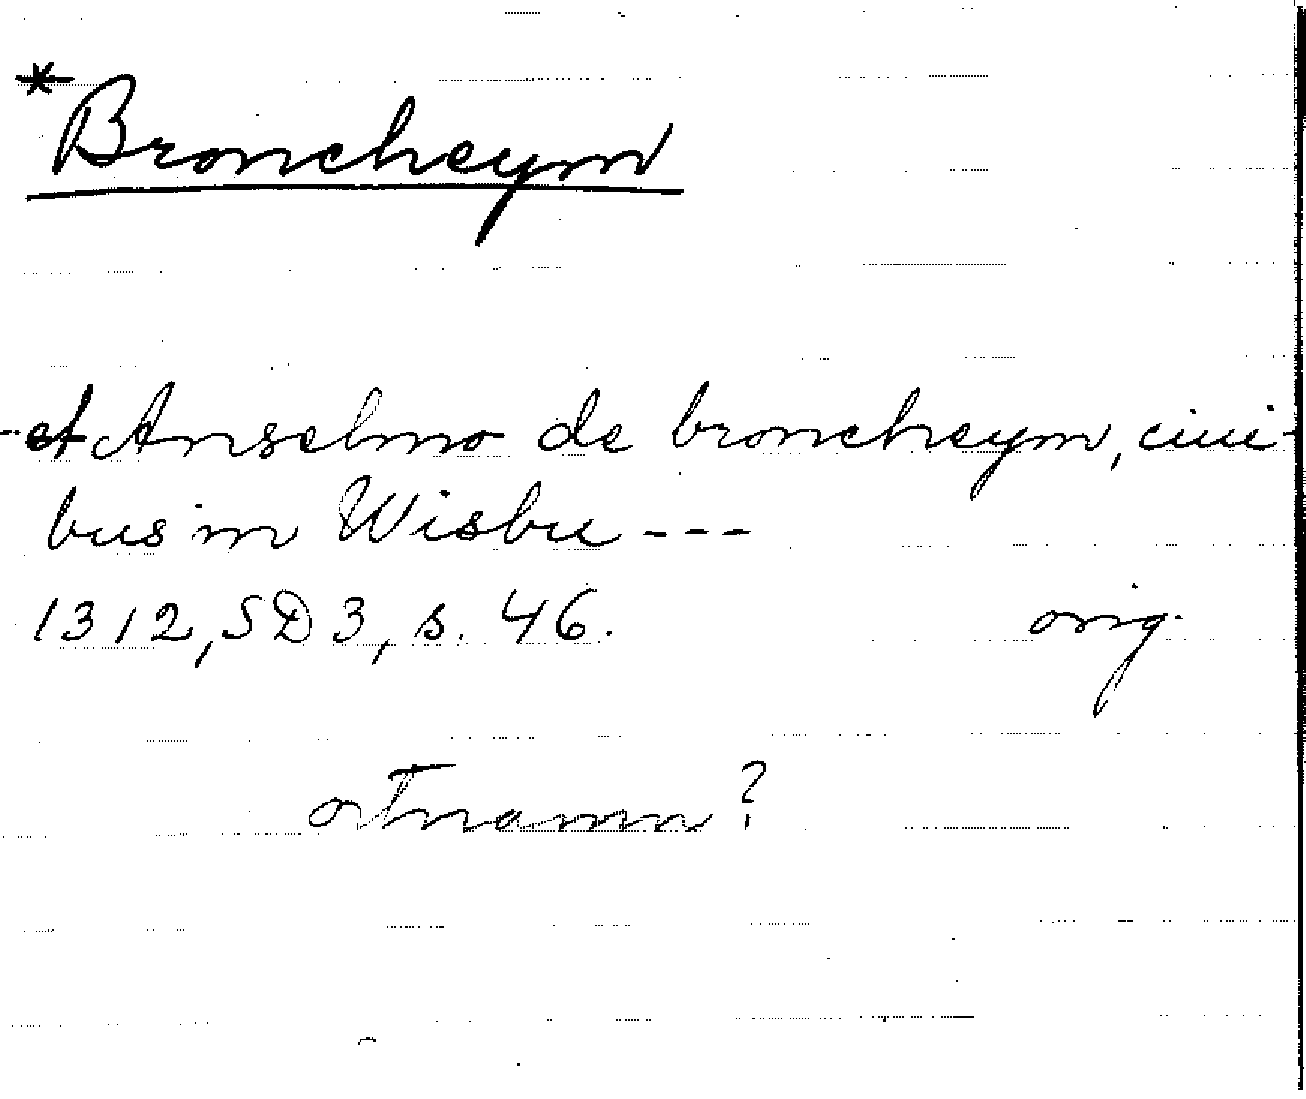 *Broncheym
-- et Anselmo de broncheym, ciui-
bus in Wisbu ---
1312, SD 3, s. 46. orig.
ortnamn?